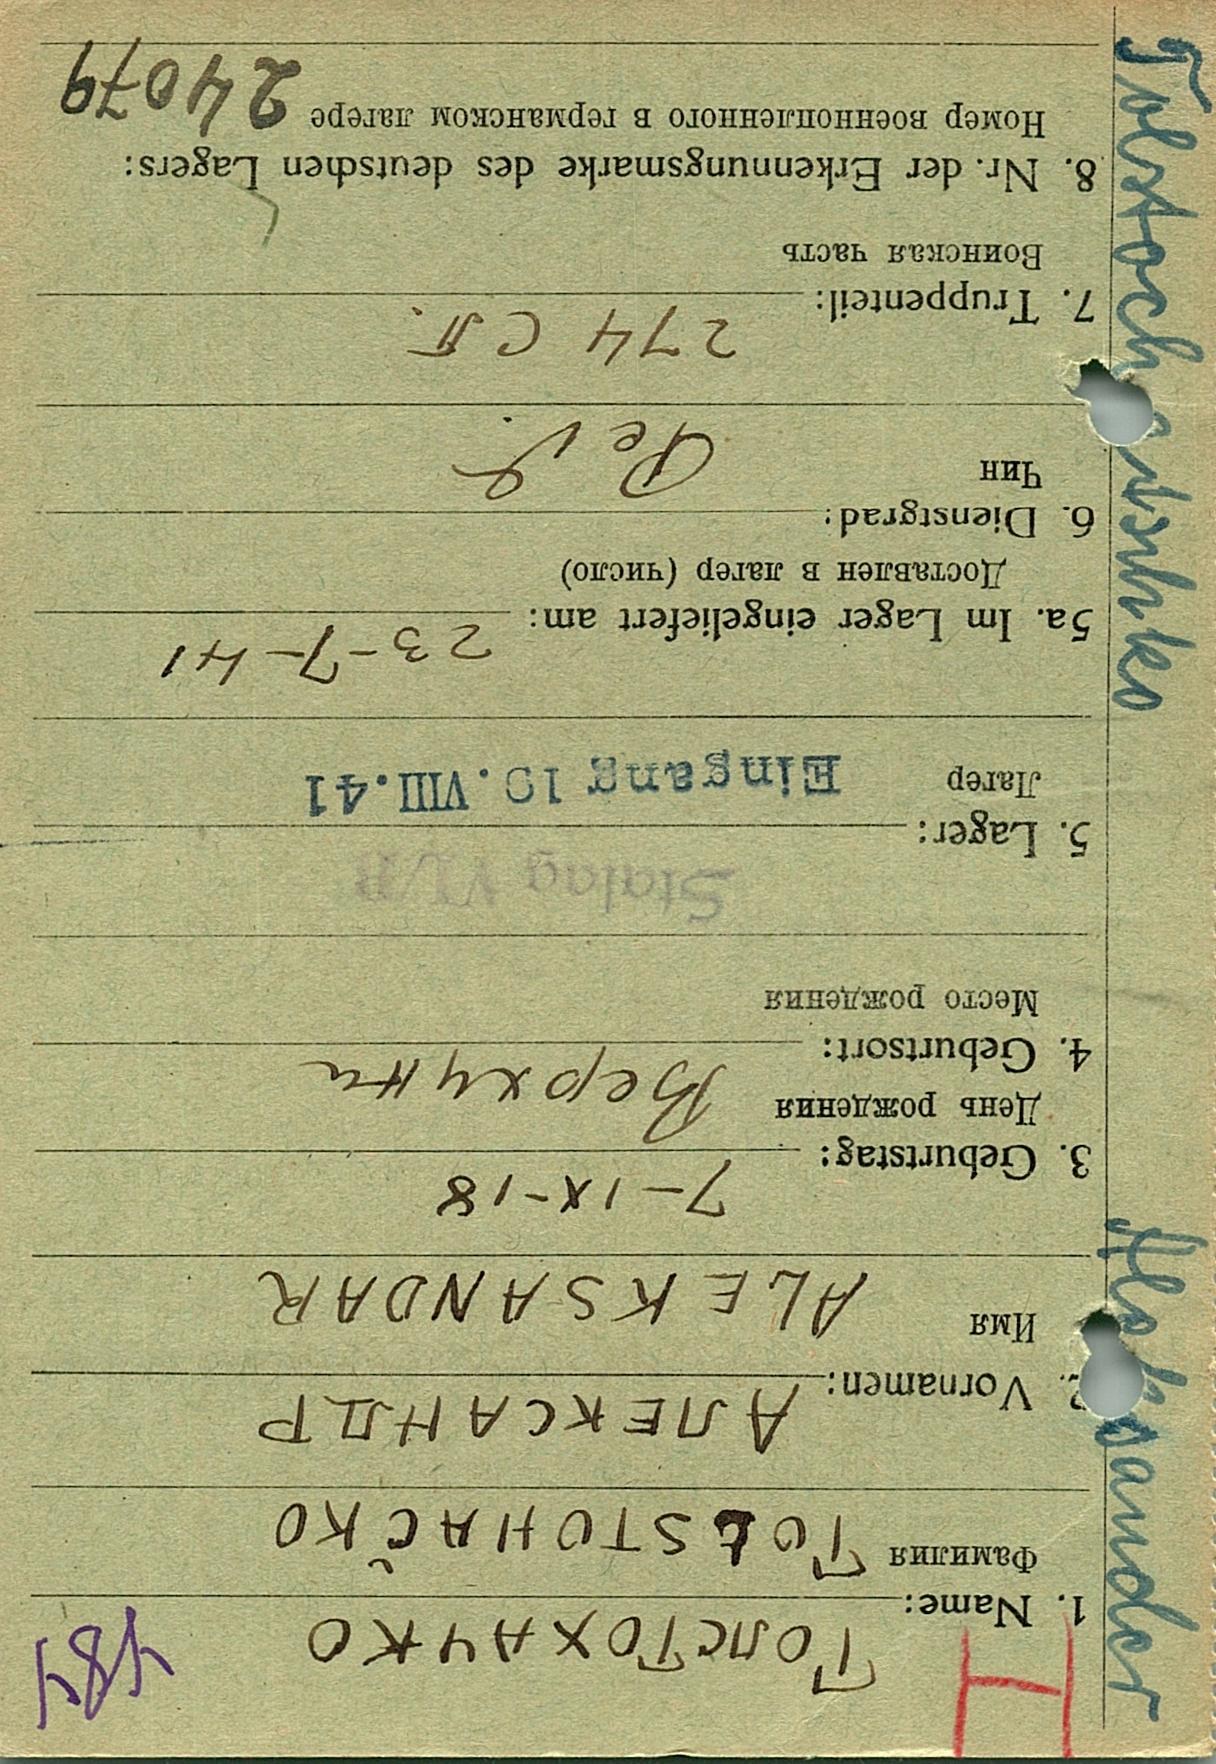 481
H
Толстохачко
1. Name:
Фамилия
TOLSTOHAČKO
АЛЕКСАНДР
2. Vornamen:
Имя
ALEKSANDAR
7-IX-18
3. Geburtstag:
День рождения
4. Geburtsort:
Место рождения
Stalag VI/B
5. Lager:
Лагер
Eingang 10.VIII.41
23-7-41
5a. Im Lager eingeliefert am:
Доставлен в лагер (число)
6. Dienstgrad:
Чин
274 СП.
7. Truppenteil:
Воинская часть
8. Nr. der Erkennungsmarke des deutschen Lagers:
Номер военнопленного в германском лагере 24079
Aleksander